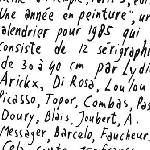 Une année en peinture", un
calendrier pour 1985 qui
consiste de 12 sérigraphi
de 30 à 40 cm par Lydi
Arickx, Di Rosa, Loulou
Picasso, Topor, Combas, Pas
Doury, Blais, Joubert, A.
Messager, Barcelo, Faucheur,